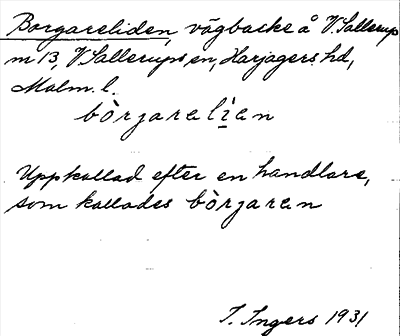 Borgareliden, vägbacke å V. Sallerup
m 13, V. Sallerups sn, Harjagers hd,
Malm. l.
bòrjarelien
Uppkallad efter en handlare,
som kallades bòrjaren
I. Ingers 1931